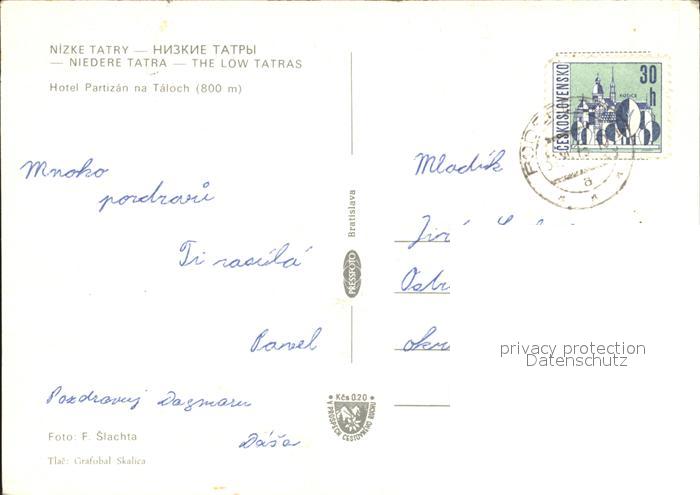 NÍZKE TATRY — НИЗКИЕ ТАТРЫ
— NIEDERE TATRA — THE LOW TATRAS
Hotel Partizán na Táloch (800 m)
Mnoho
pozdravů
Ti
Pavel
Pozdravuj Dagmaru
Dáša
Foto: F. Šlachta
Tlač: Grafobal Skalica
Bratislava
PRESSFOTO
Kčs 0.20
V PROSPECH CESTOVNÉHO RUCHU
ČESKOSLOVENSKO
30
h
KOŠICE
a
Mladík
Jiří
Ostr
okr
privacy protection
Datenschutz